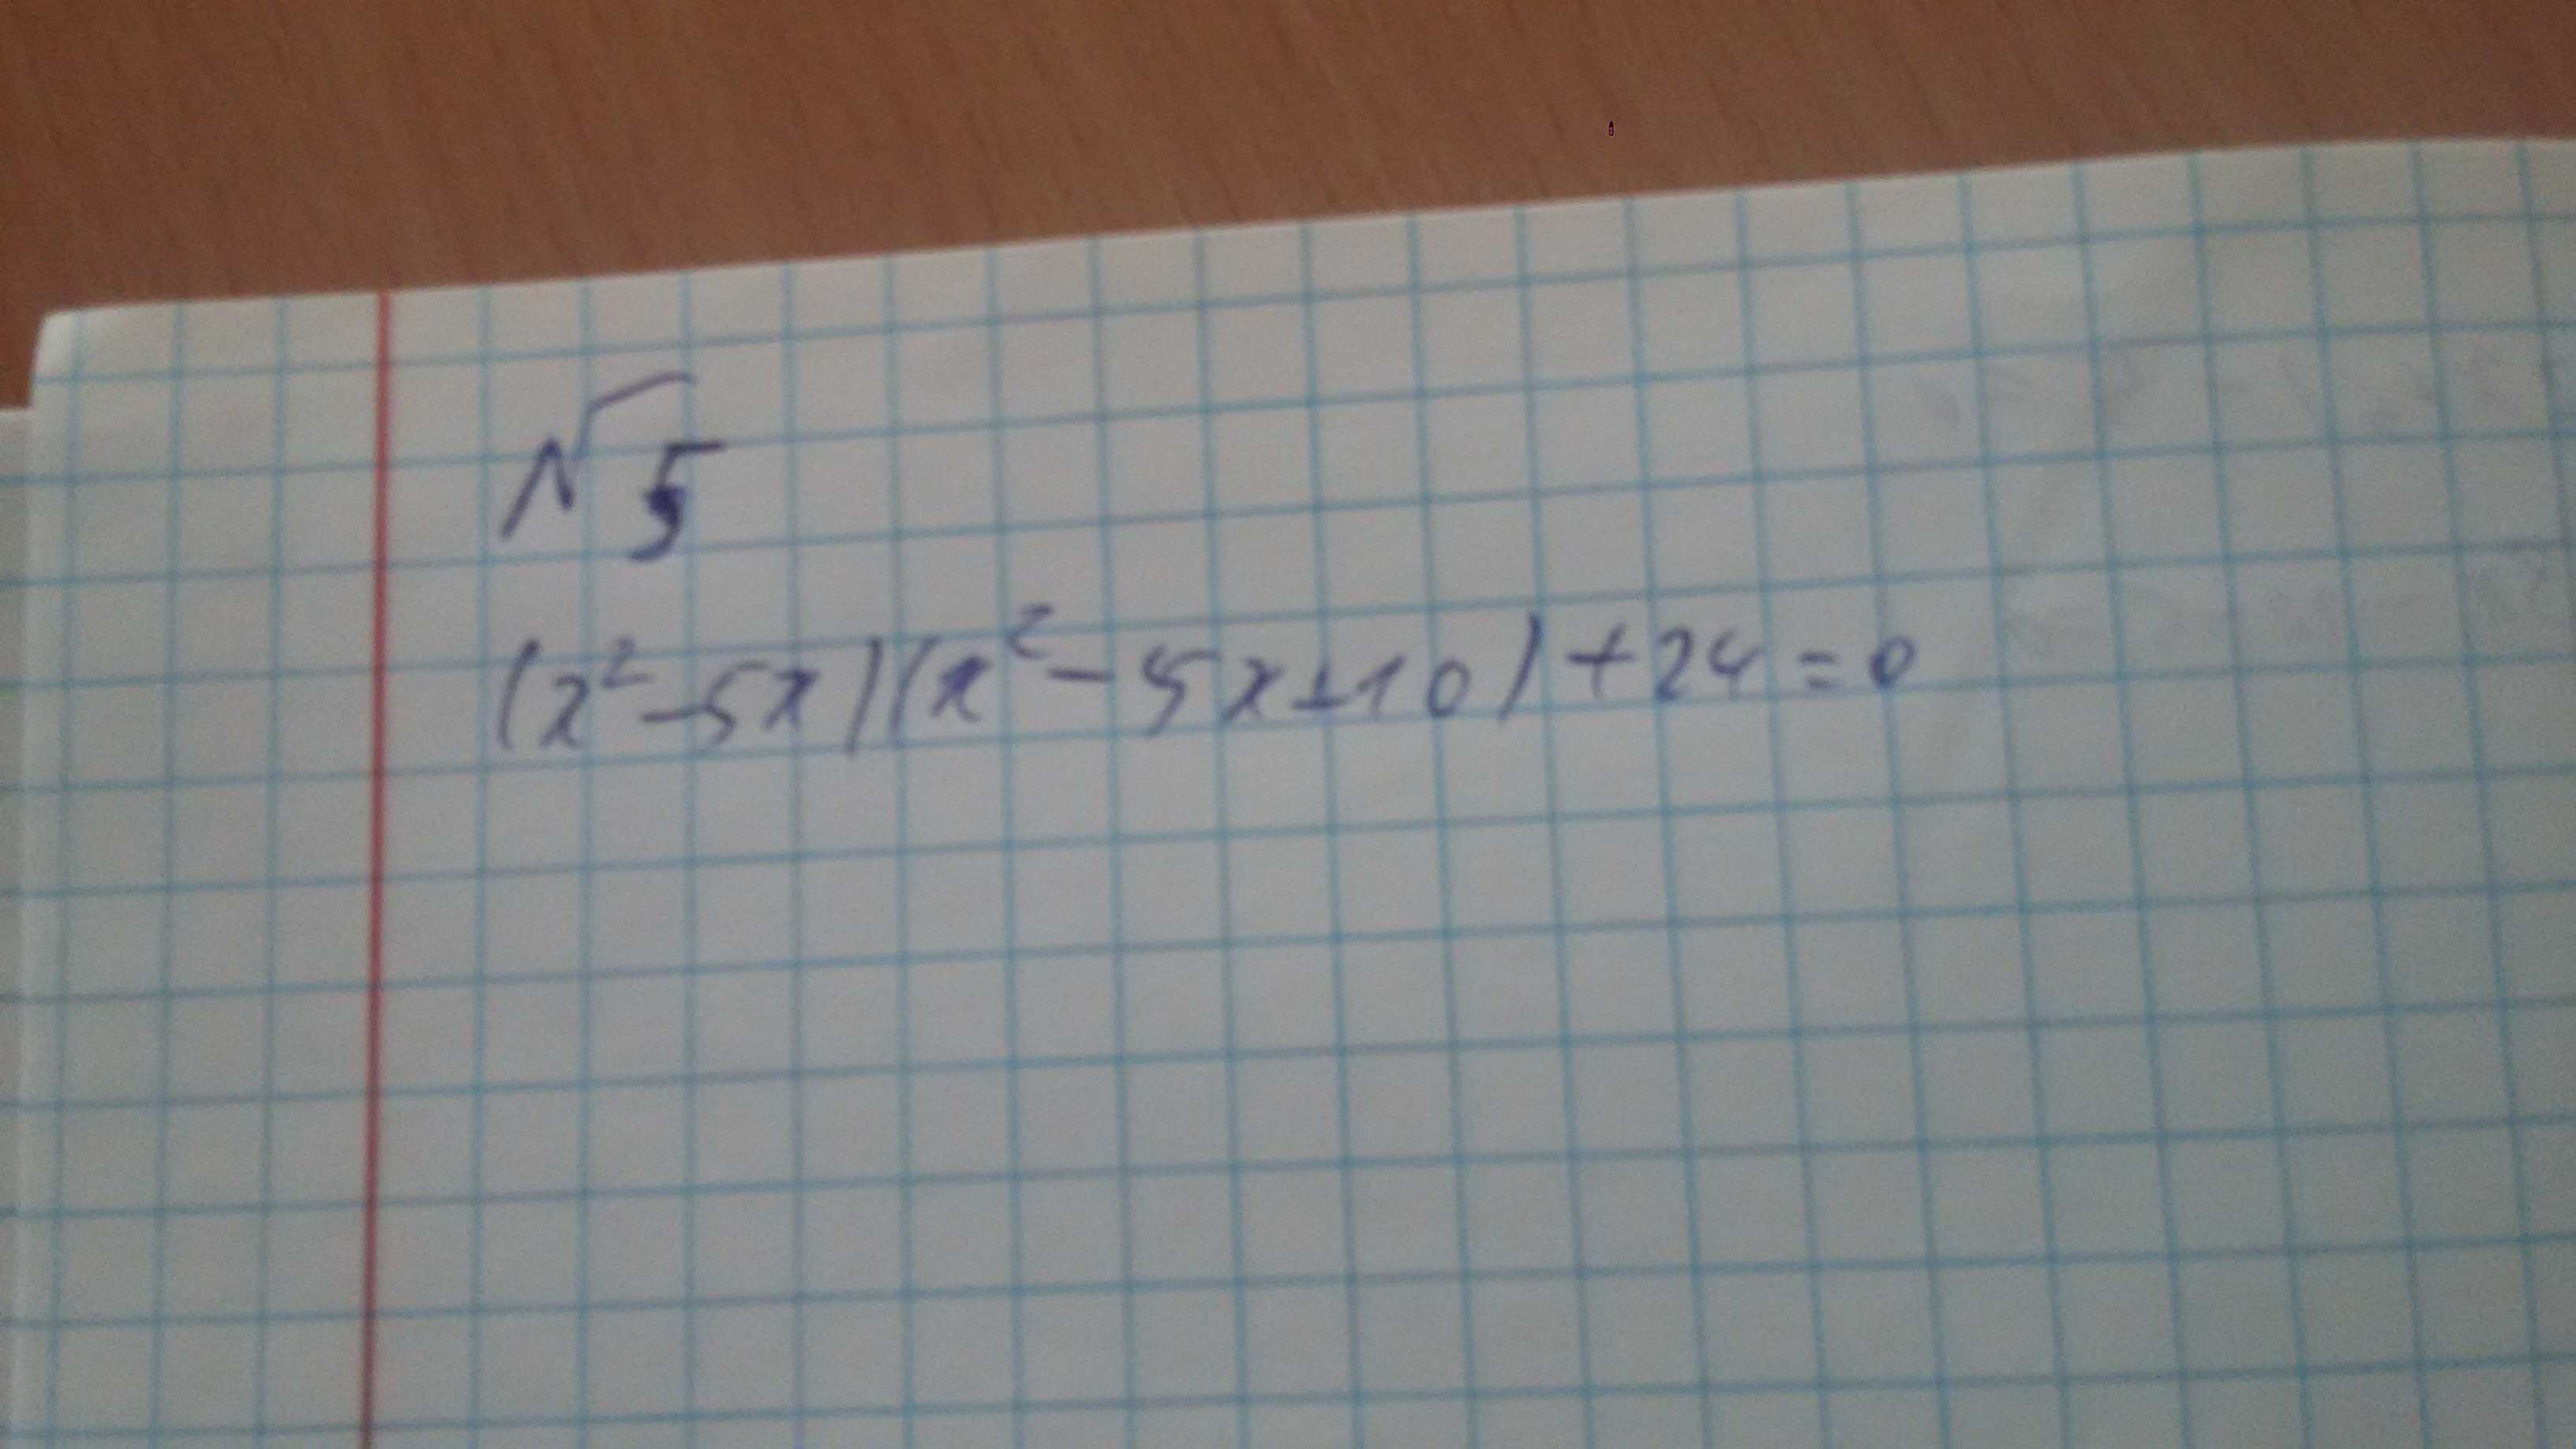 √5
(x²-5x)(x²-5x+10)+24=0